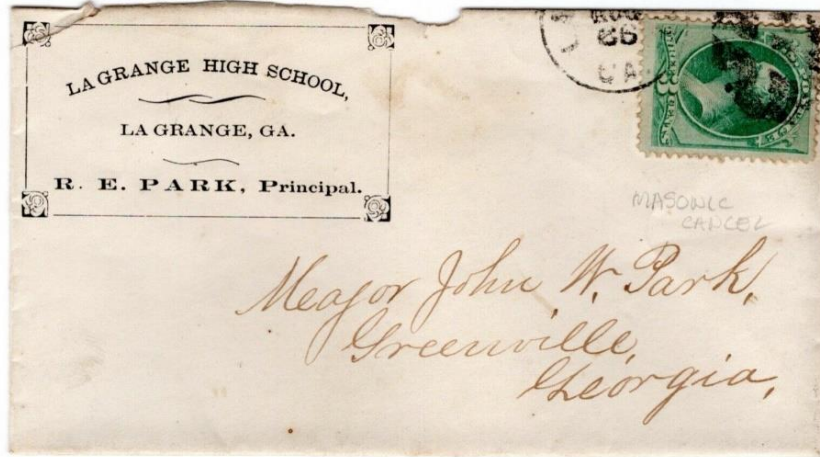 LAGRANGE HIGH SCHOOL,
LA GRANGE, GA.
R. E. PARK, Principal.
AUG
26
GA
MASONIC
CANCEL
Meajor John W. Park,
Greenville,
Georgia,